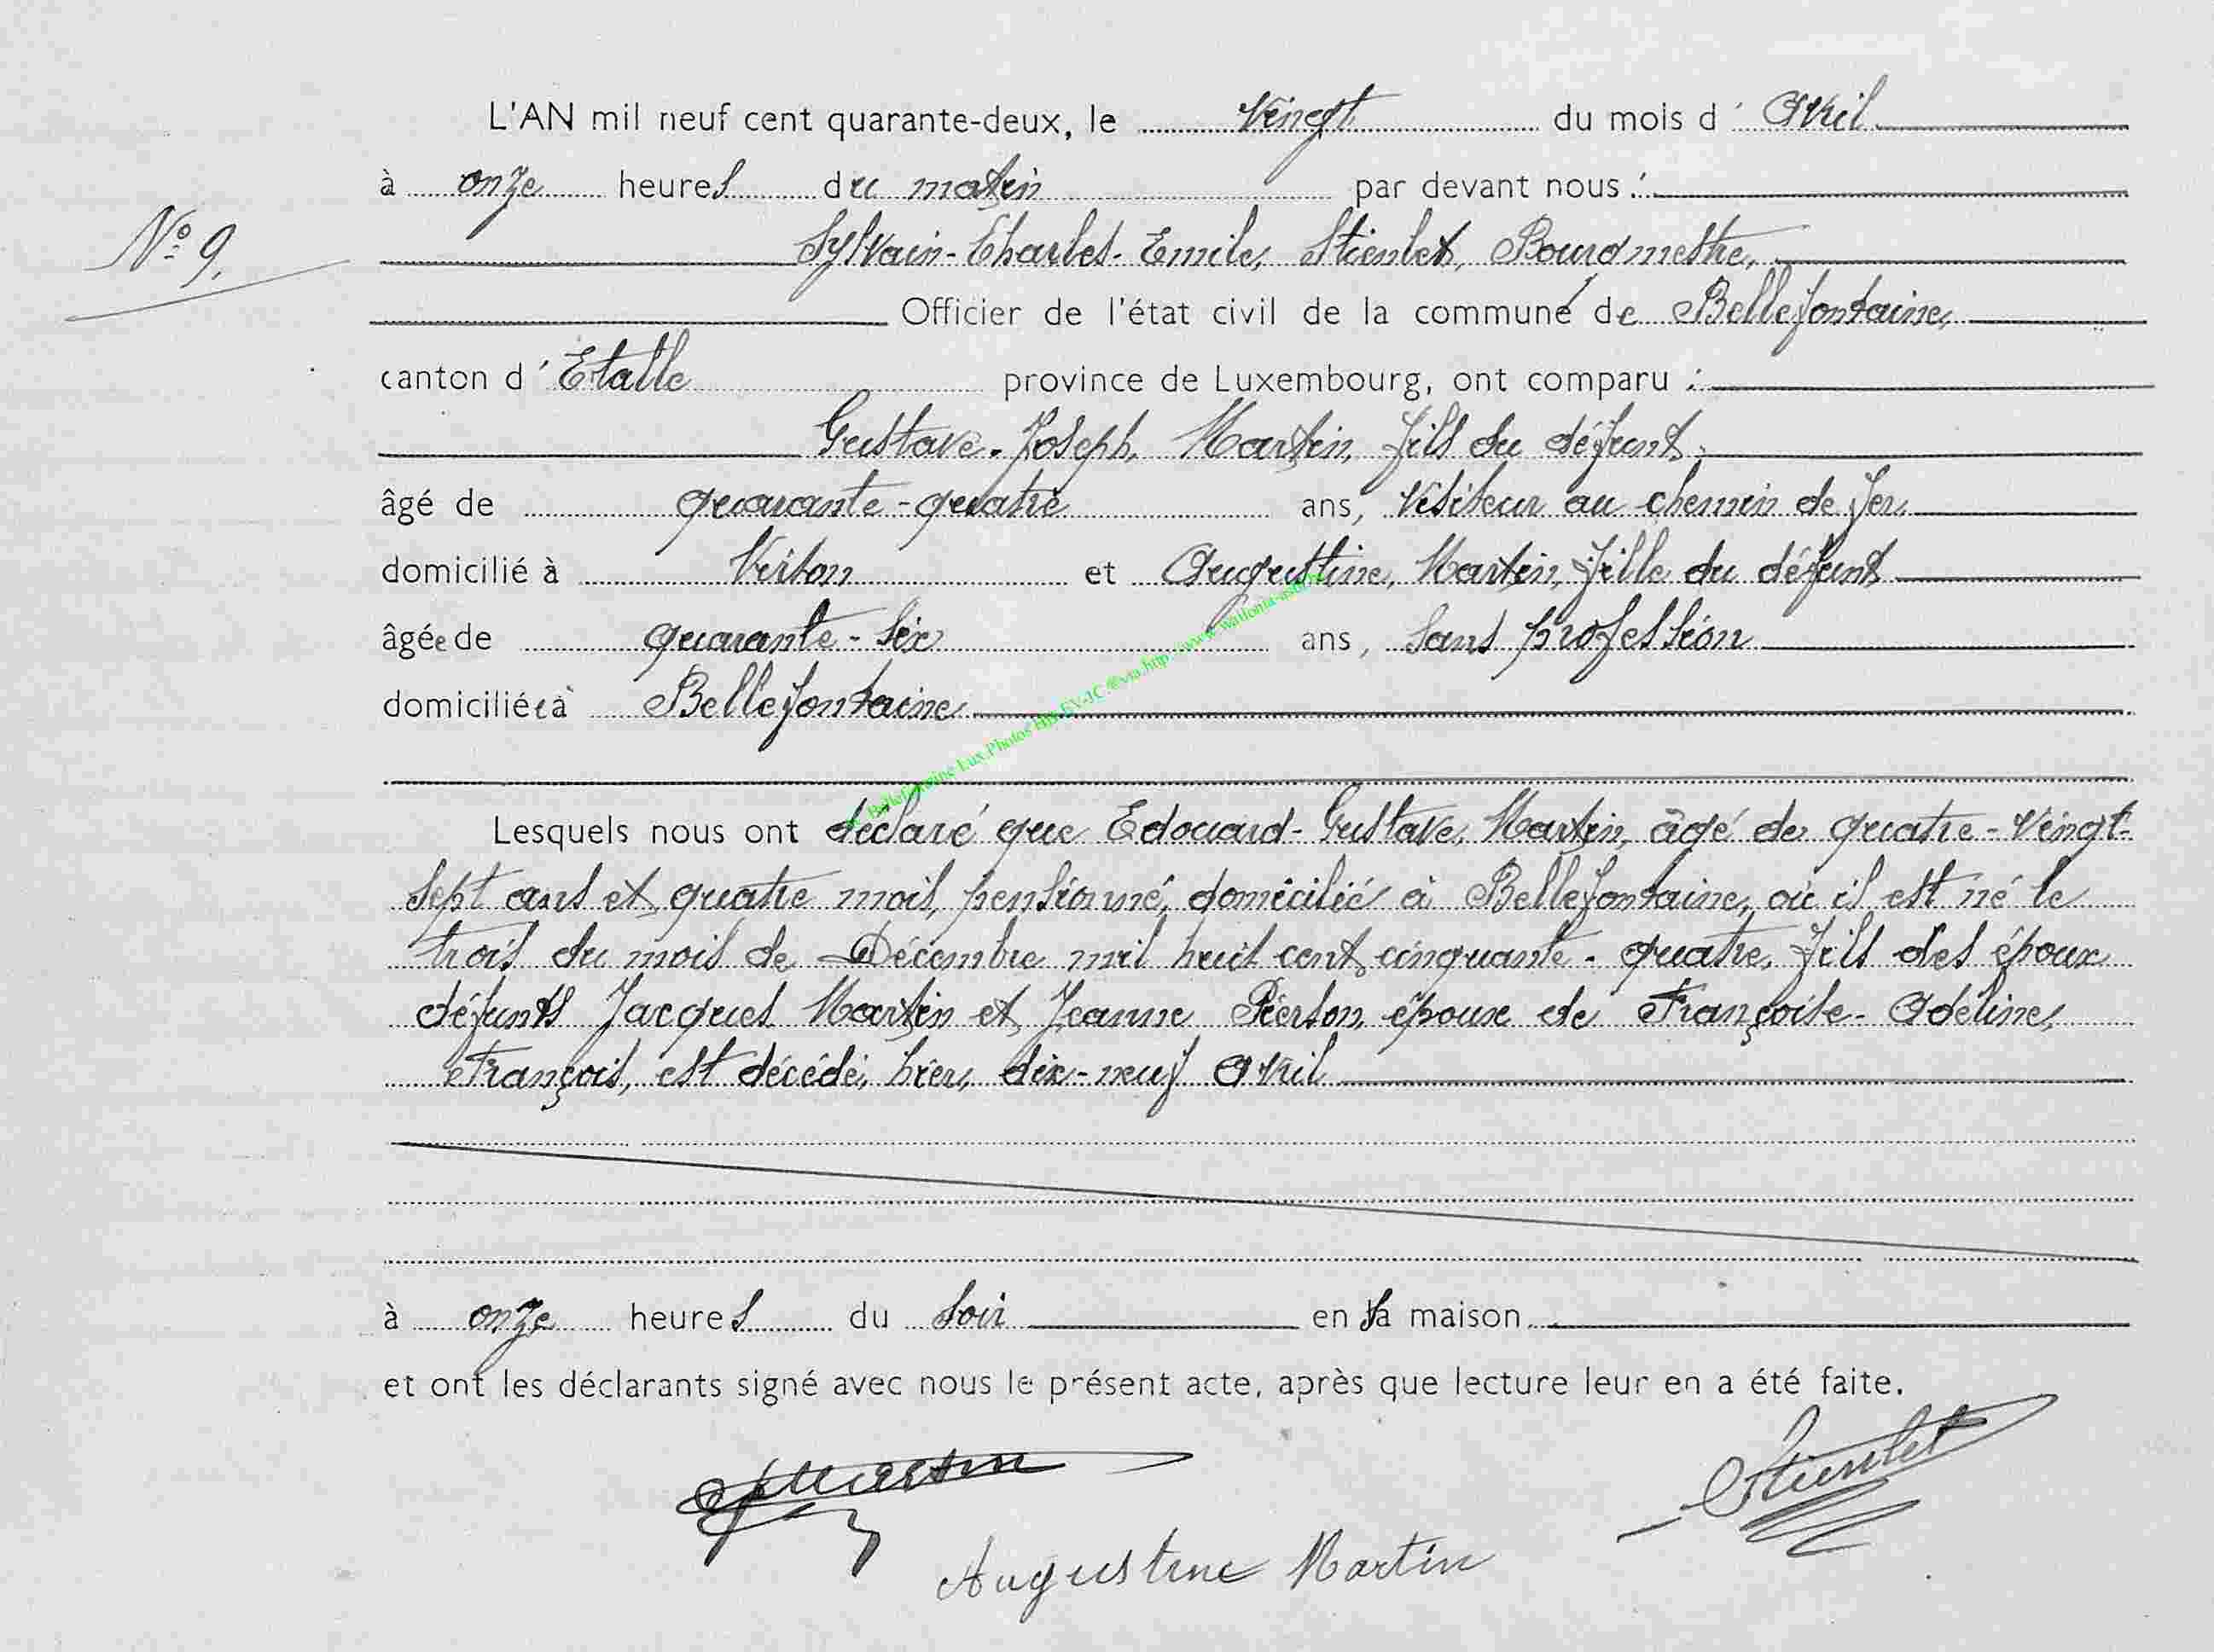 L'AN mil neuf cent quarante-deux, le Vingt du mois d' Avril
à onze heures du matin par devant nous :
N° 9.
Sylvain-Charles-Emile, Stienlet, Bourgmestre,
Officier de l'état civil de la commune de Bellefontaine,
canton d' Etalle province de Luxembourg, ont comparu :
Gustave-Joseph, Martin, fils du défunt,
âgé de quarante-quatre ans, Visiteur au chemin de fer,
domicilié à Virton et Augustine, Martin, fille du défunt
âgée de quarante-six ans, sans profession
domiciliée à Bellefontaine
Lesquels nous ont déclaré que Edouard-Gustave, Martin, âgé de quatre-vingt-
sept ans et quatre mois, pensionné, domicilié à Bellefontaine, où il est né le
trois du mois de Décembre mil huit cent cinquante-quatre, fils des époux
défunts Jacques Martin et Jeanne Pierson, époux de Françoise-Adeline,
François, est décédé, hier, dix-neuf Avril
à onze heures du soir en sa maison
et ont les déclarants signé avec nous le présent acte, après que lecture leur en a été faite.
Martin
Stienlet
Augustine Martin